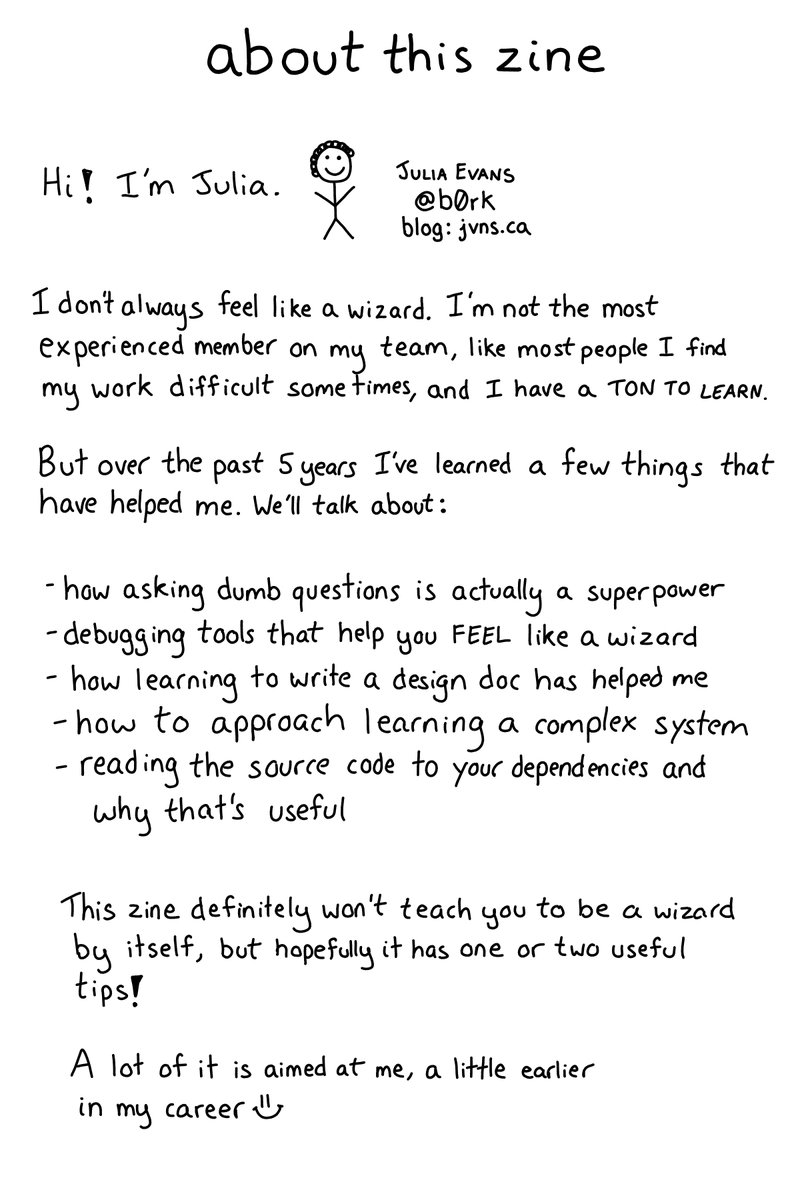 about this zine
Hi! I'm Julia.
JULIA EVANS
@b0rk
blog: jvns.ca
I don't always feel like a wizard. I'm not the most
experienced member on my team, like most people I find
my work difficult sometimes, and I have a TON TO LEARN.
But over the past 5 years I've learned a few things that
have helped me. We'll talk about:
- how asking dumb questions is actually a superpower
- debugging tools that help you FEEL like a wizard
- how learning to write a design doc has helped me
- how to approach learning a complex system
- reading the source code to your dependencies and
why that's useful
This zine definitely won't teach you to be a wizard
by itself, but hopefully it has one or two useful
tips!
A lot of it is aimed at me, a little earlier
in my career